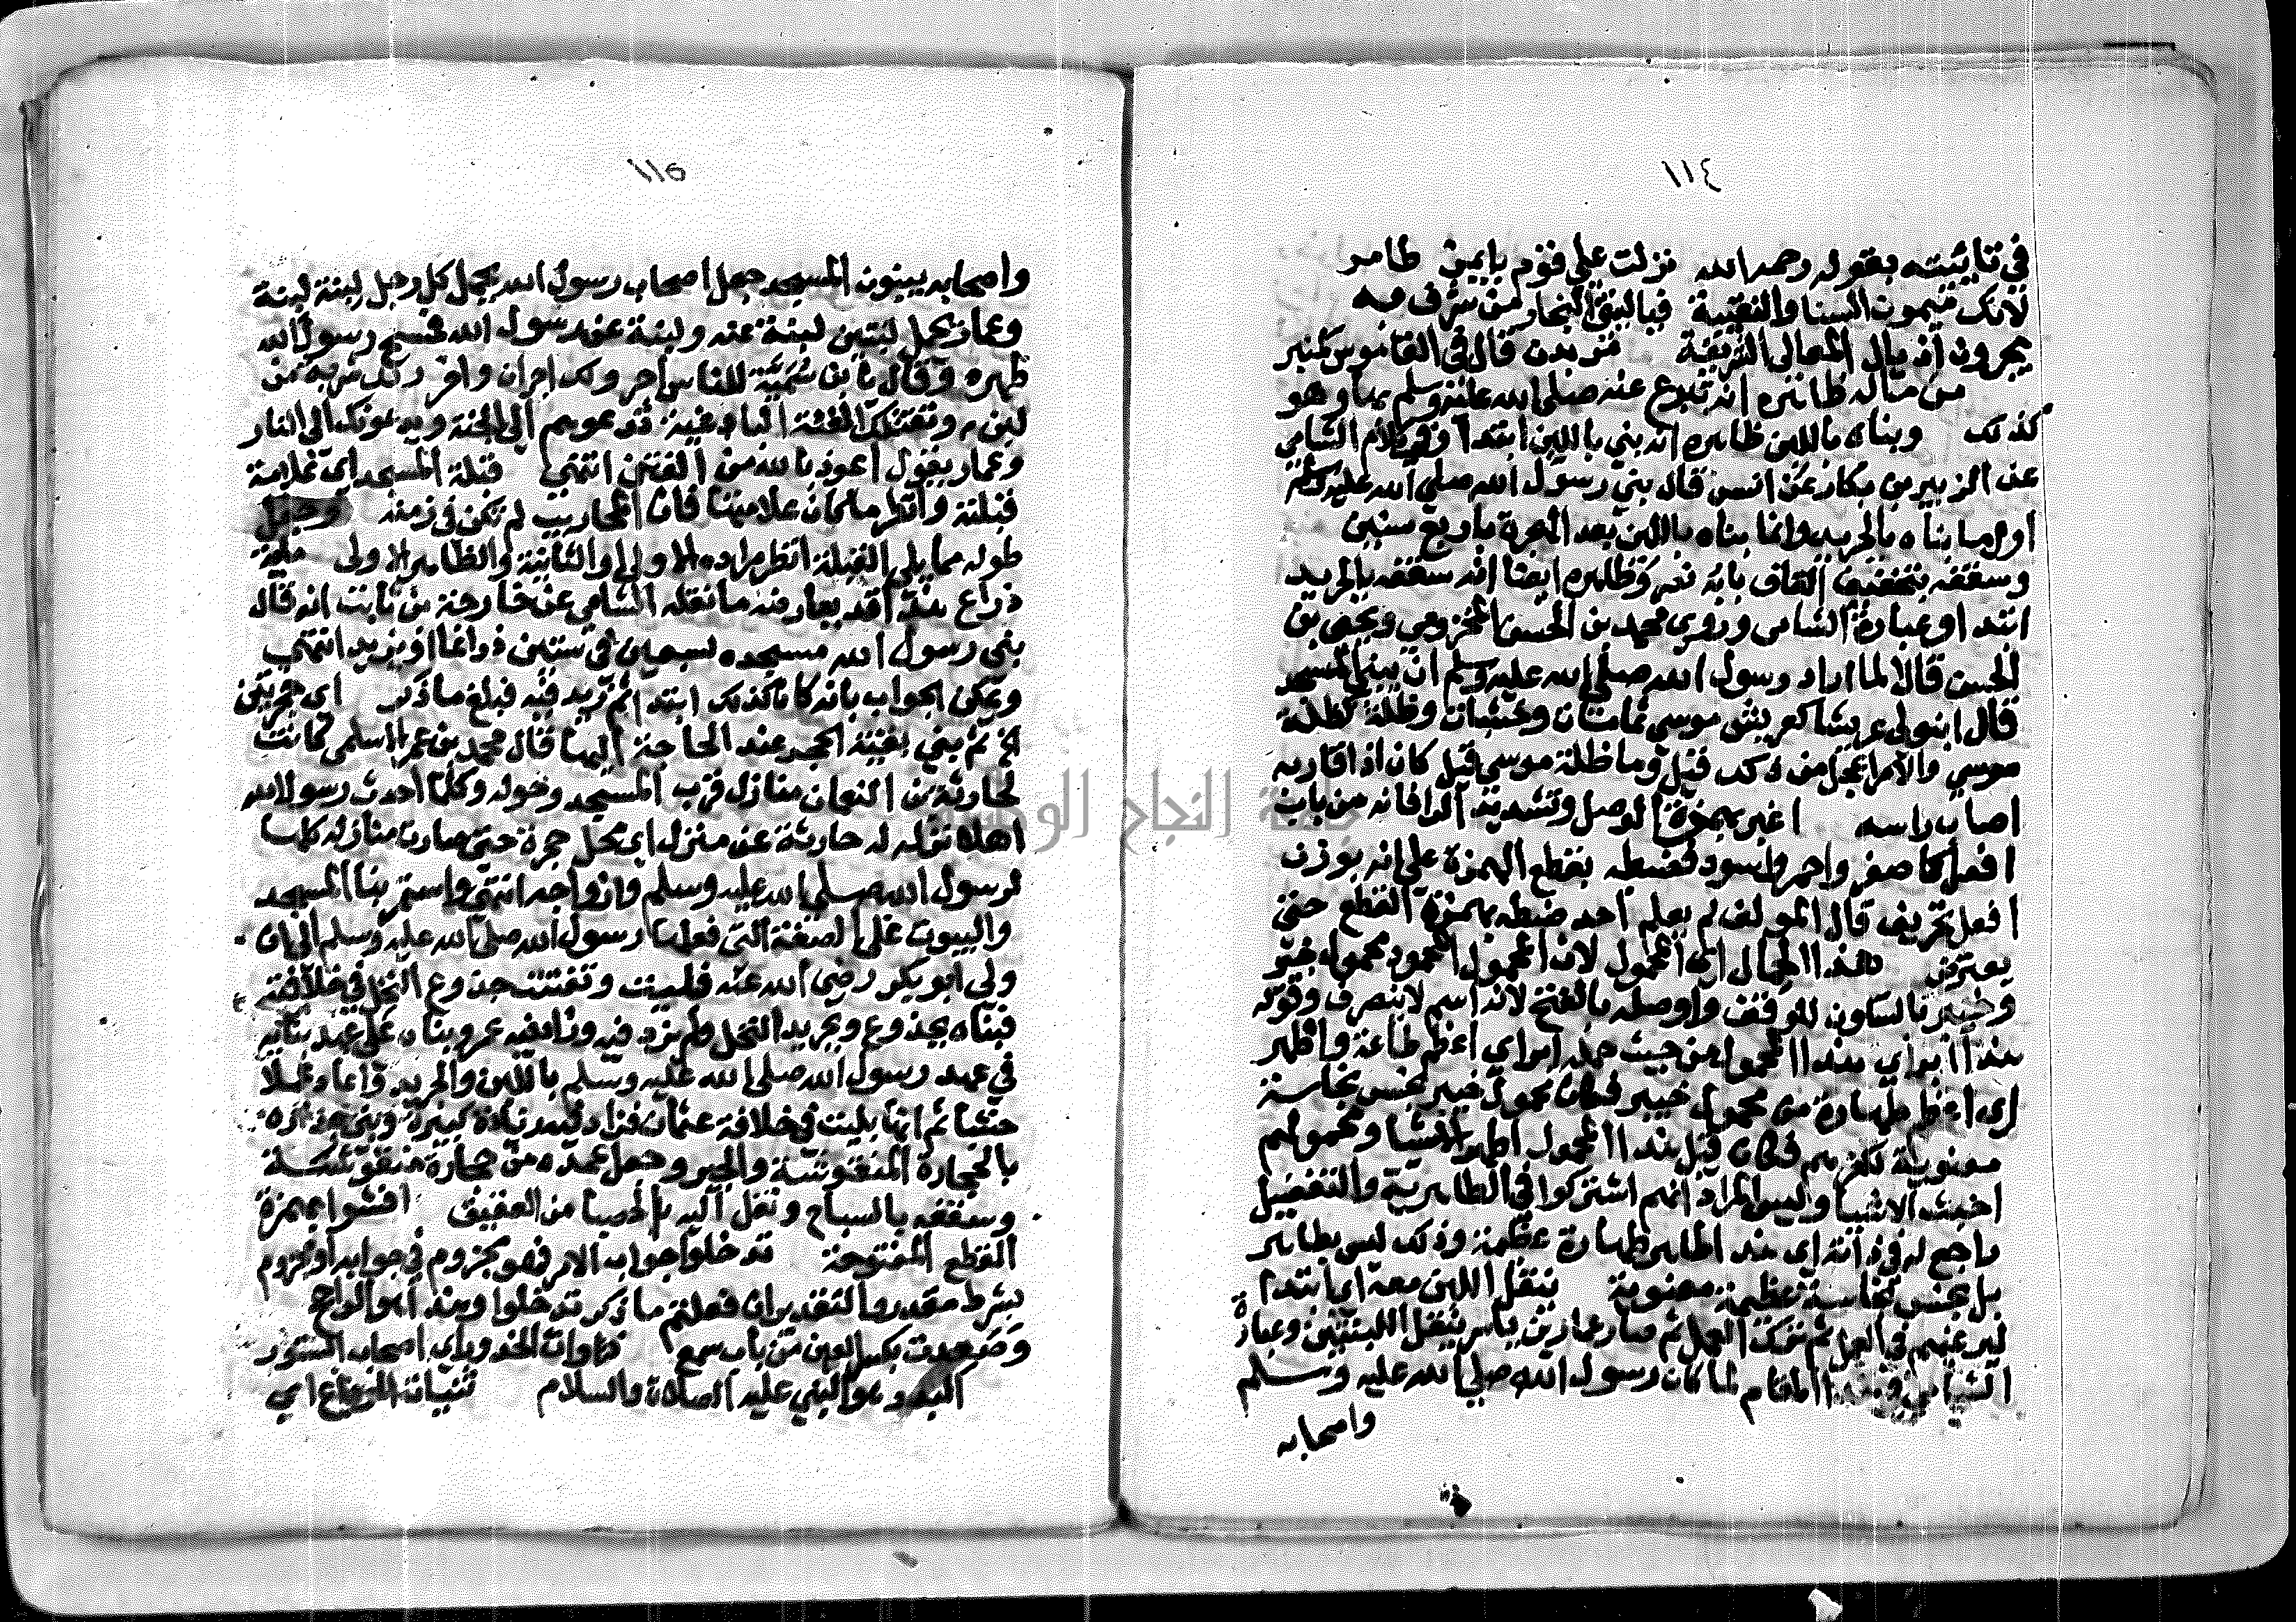 ١١٤
في تائيته بقوله رحمه الله نزلت علي قوم بايمن طاير
لانك ميمون السنا والنقيبة فيا لبني النجار من شرف به
يجرون اذيال المعالي الشريفة مربد قال في القاموس كمنبر
من ماله ظاهره انه تبرع عنه صلى الله عليه وسلم بها وهو
كذلك وبناه باللبن ظاهره انه بني باللبن ابتدا وفي كلام الشامي
عن الزبير بن بكار عن انس قال بني رسول الله صلى الله عليه وسلم
اول ما بناه بالجريد وانما بناه باللبن بعد الهجرة باربع سنين
وسقفه بتخفيف القاف بابه نصر وظاهره ايضا انه سقفه بالجريد
ابتدا وعبارة الشامي وروى محمد بن الحسن المخزومي ويحيى بن
الحسن قالا لما اراد رسول الله صلى الله عليه وسلم ان يبني المسجد
قال ابنو لي عريشا كعريش موسى ثمامات وخشبات وظلة كظلة
موسي والامر اعجل من ذلك قيل وما ظلة موسى قيل كان اذا قام به
اصاب راسه اغبر بهمزة الوصل وتشديد الرا فانه من باب
افعل كاصفر واحمر واسود فضبطه بقطع الهمزة على انه بوزن
افعل تحريف قال المولف لم يعلم احد ضبطه بهمزة القطع حتى
يعترض هذا الحمال اي المحمول لان المحمود محمول خيبر
وخيبر بالسكون للوقف واوصله بالفتح لانه اسم لا ينصرف وقوله
هذا ابر اي هذا المحمول من حيث حمله ابر اي اعظم طاعة واطهر
اي اعظم طهارة من محمول خيبر فكان محمول خيبر نجس نجاسة
معنوية لكفرهم فكان قيل هذا المحمول اطهر الاشيا ومحمولهم
اخبث الاشيا وليس المراد انهم اشتركوا في الطاهرية والتفضيل
راجع له في ذاته اي هذا طاهر طهارة عظيمة وذلك ليس بطاهر
بل نجس نجاسة عظيمة معنوية ينقل اللبن معه اي ابتدا
ليرغبهم في العمل ثم ترك العمل ثم صار عمار بن ياسر ينقل اللبنتين وعبارة
الشامي في هذا المقام لما كان رسول الله صلي الله عليه وسلم
واصحابه
١١٥
واصحابه يبنون المسجد جعل اصحاب رسول الله يحمل كل رجل لبنة لبنة
وعمار يحمل لبنتين لبنة عنه ولبنة عن رسول الله فمسح رسول الله
ظهره وقال يا بن سمية للناس اجر ولك اجران واخر زادك شربة من
لبن وتقتلك الفئة الباغية تدعوهم الى الجنة ويدعونك الى النار
وعمار يقول اعوذ بالله من الفتن انتهى قبلة المسجد اي علامة
قبلته وانظر ما كان علامتها فان المحاريب لم تكن في زمنه وجعل
طوله مما يلي القبلة انظر مراده الاولى او الثانية والظاهر الاولى ماية
ذراع هذا قد يعارضه ما نقله الشامي عن خارجة بن ثابت انه قال
بنى رسول الله مسجده سبعين في ستين ذراعا او يزيد انتهى
ويمكن الجواب بانه كان كذلك ابتدا ثم زيد فيه فبلغ ما ذكر اي حجرتين
الخ ثم بني بقية الحجر عند الحاجة اليها قال محمد بن عمر الاسلمي كانت
لحارثة بن النعمان منازل قرب المسجد وحوله وكلما احدث رسول الله
اهلا نزل له حارثة عن منزل اي محل حجرة حتى صارت منازله كلها
لرسول الله صلى الله عليه وسلم وازواجه انتهى واستمر بنا المسجد
والبيوت على الصفة التي فعلها رسول الله صلى الله عليه وسلم الى ان
ولي ابو بكر رضى الله عنه فبليت وتفتتت جذوع النخل في خلافته
فبناه بجذوع وبجريد النخل ولم يزد فيه وزاد فيه عمر وبناه على عهد بنائه
في عهد رسول الله صلى الله عليه وسلم باللبن والجريد واعاد عمده
خشبا ثم انها بليت في خلافة عثمان فزاد فيه زيادة كبيرة وبنى جداره
بالحجارة المنقوشة والجير وجعل عمده من حجارة منقوشة
وسقفه بالساج ونقل اليه الحصبا من العقيق افشوا بهمزة
القطع المفتوحة تدخلوا جواب الامر فهو مجزوم في جوابه او مجزوم
بشرط مقدر والتقدير ان فعلتم ما ذكر تدخلوا وهذا هو الراجح
وصعدت بكسر العين من باب سمع ذوات الخدور اي اصحاب الستور
البدر هو النبي عليه الصلاة والسلام ثنيات الوداع اي